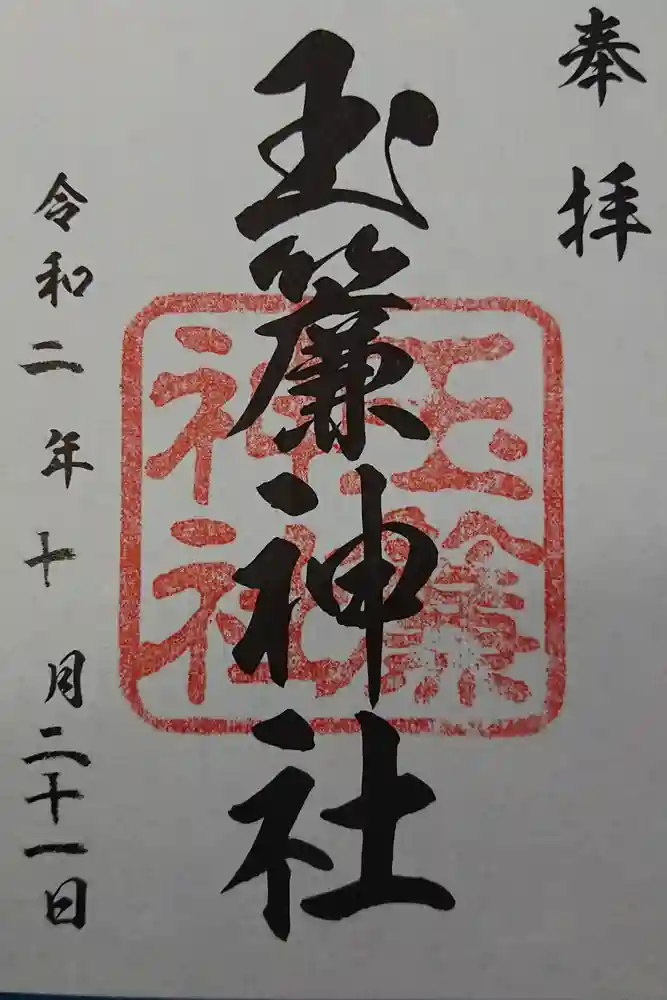 奉拝
玉簾神社
玉簾
神社
令和二年十月二十一日